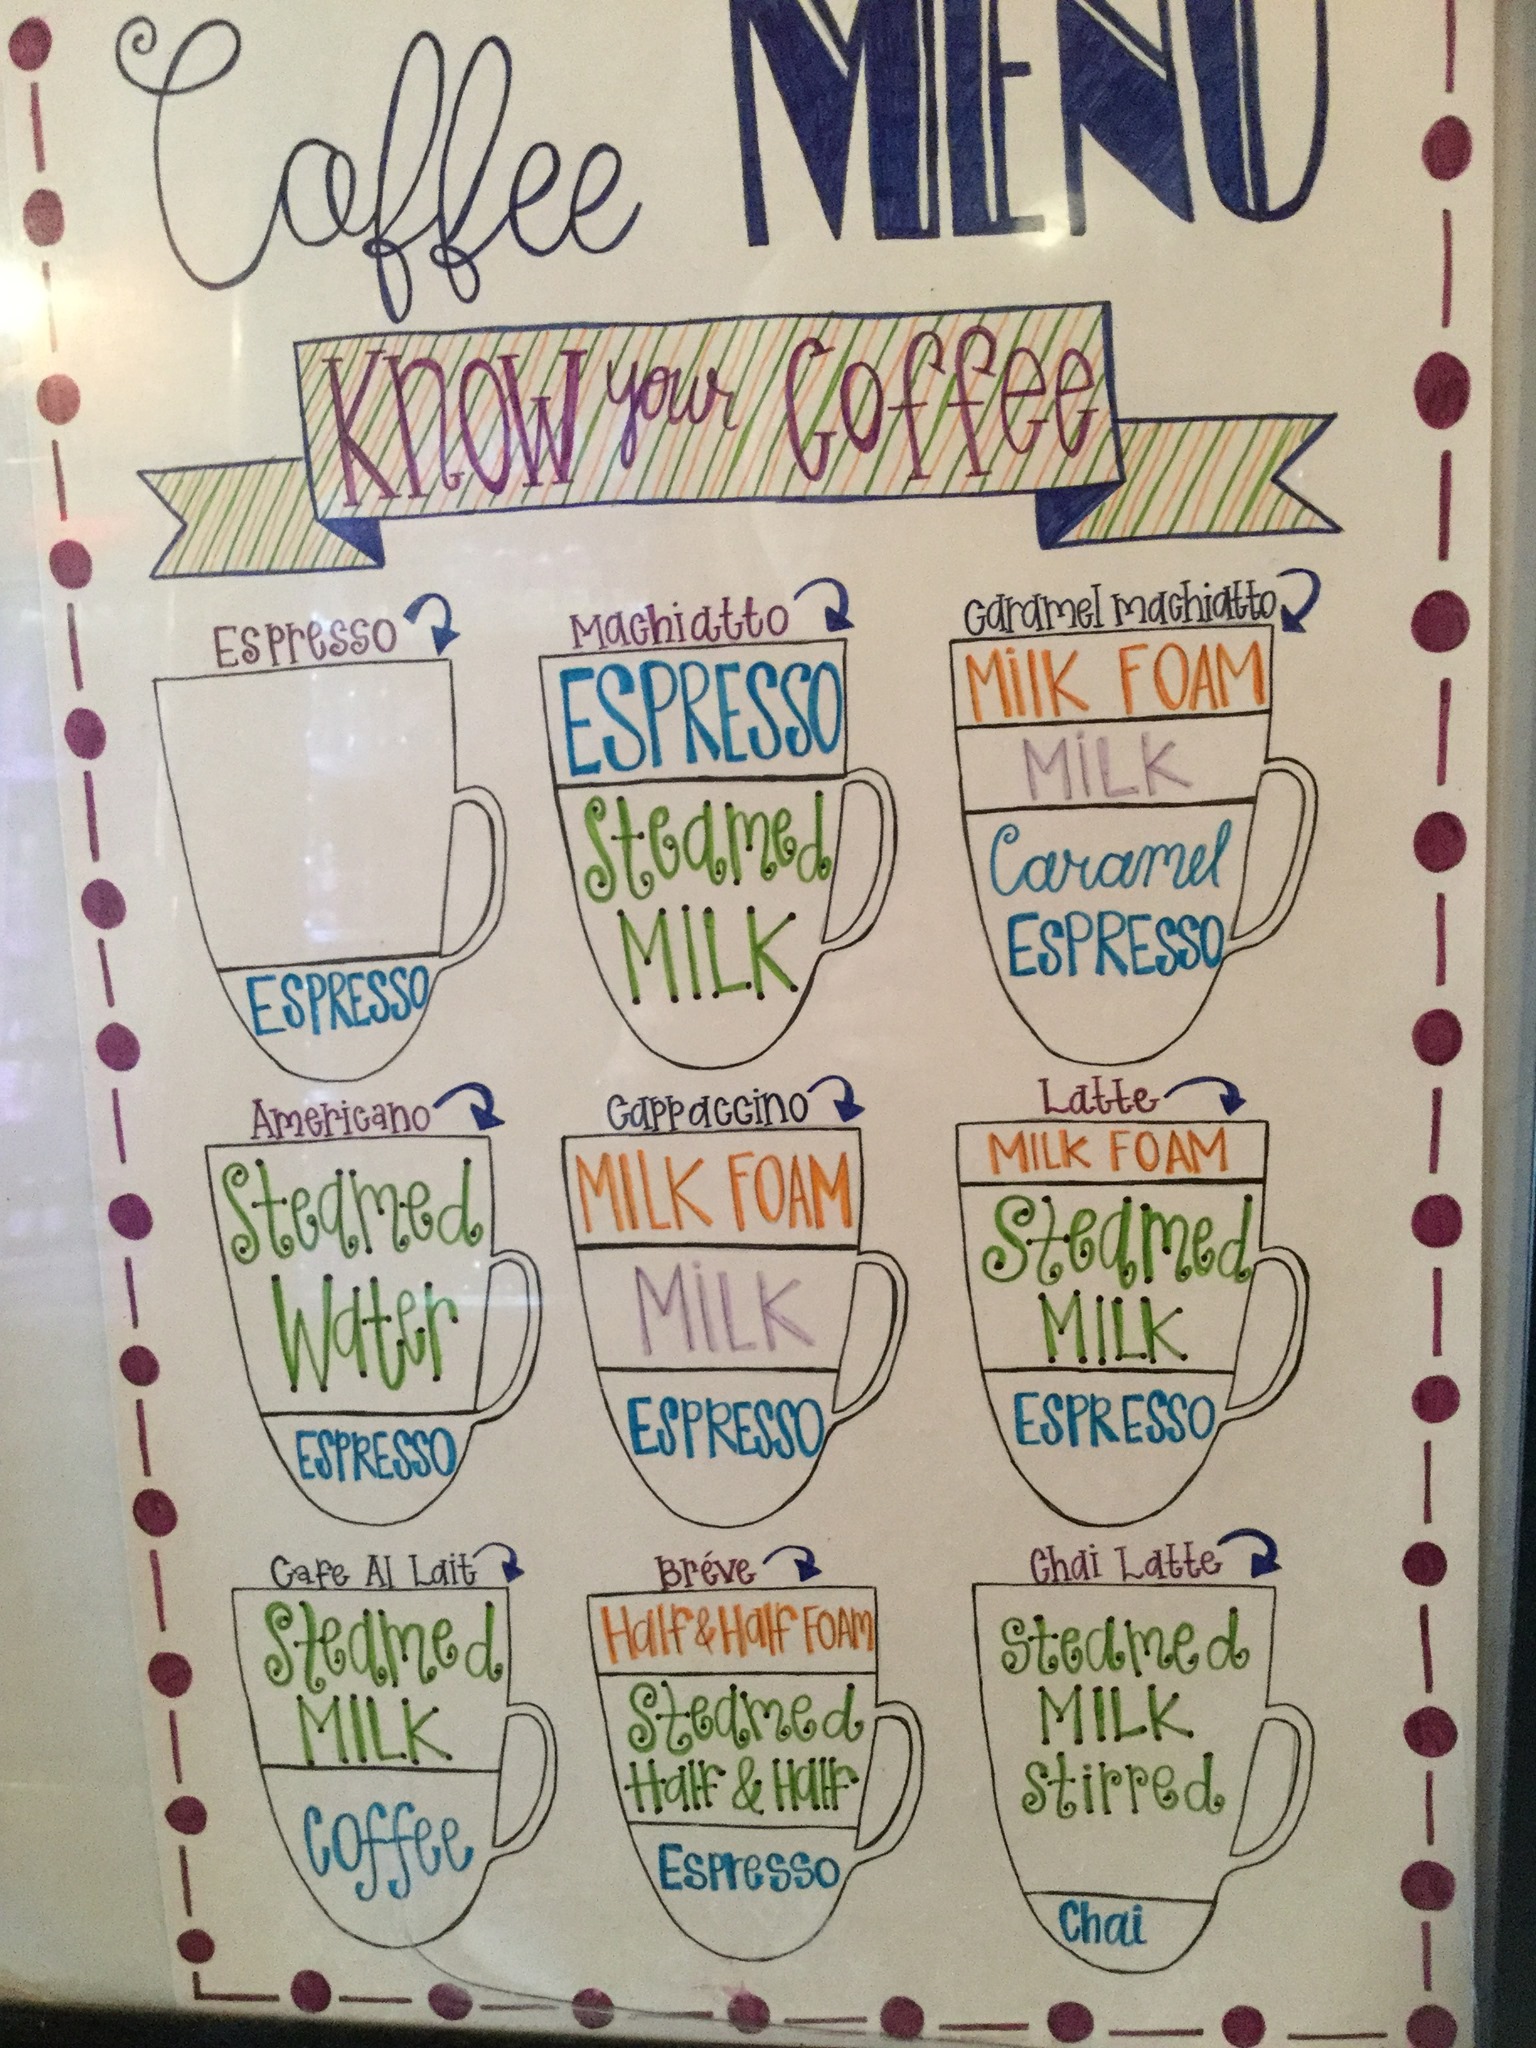 Coffee MENU
Know your Coffee
Espresso
ESPRESSO
Machiatto
ESPRESSO
Steamed
MILK
Caramel Machiatto
MilK FOAM
MiLK
Caramel
ESPRESSO
Americano
Steamed
Water
ESPRESSO
Cappaccino
MILK FOAM
MiLK
ESPRESSO
Latte
MILK FOAM
Steamed
MILK
ESPRESSO
Cafe Al Lait
Steamed
MILK
Coffee
Bréve
Half & Half FOAM
Steamed
Half & Half
Espresso
Chai Latte
Steamed
MILK
Stirred
Chai